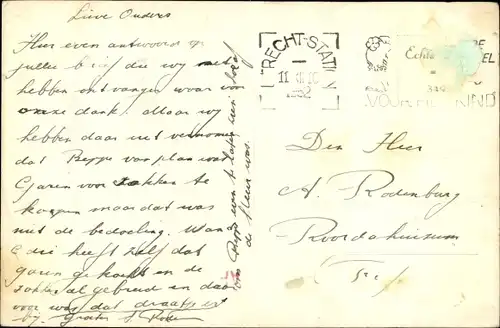 Lieve Ouders
Hier even antwoord op
jullie brief die wij
hebben ontvangen waar voor
onze dank. Maar wij
hebben daar uit vernomen
dat Beppe van plan was
Garen voor sokken te
koopen maar dat was
niet de bedoeling. Want
die heeft zelf dat
garen gekocht en de
sokken al gebreid en daar
voor was dat draatje er
bij. Groeten
te laten zien
de kleur was.
RECHT-STATI
11
1952
Echte
349
VOOR KIND
Den Heer
A. Rodenburg
Roordahuizum